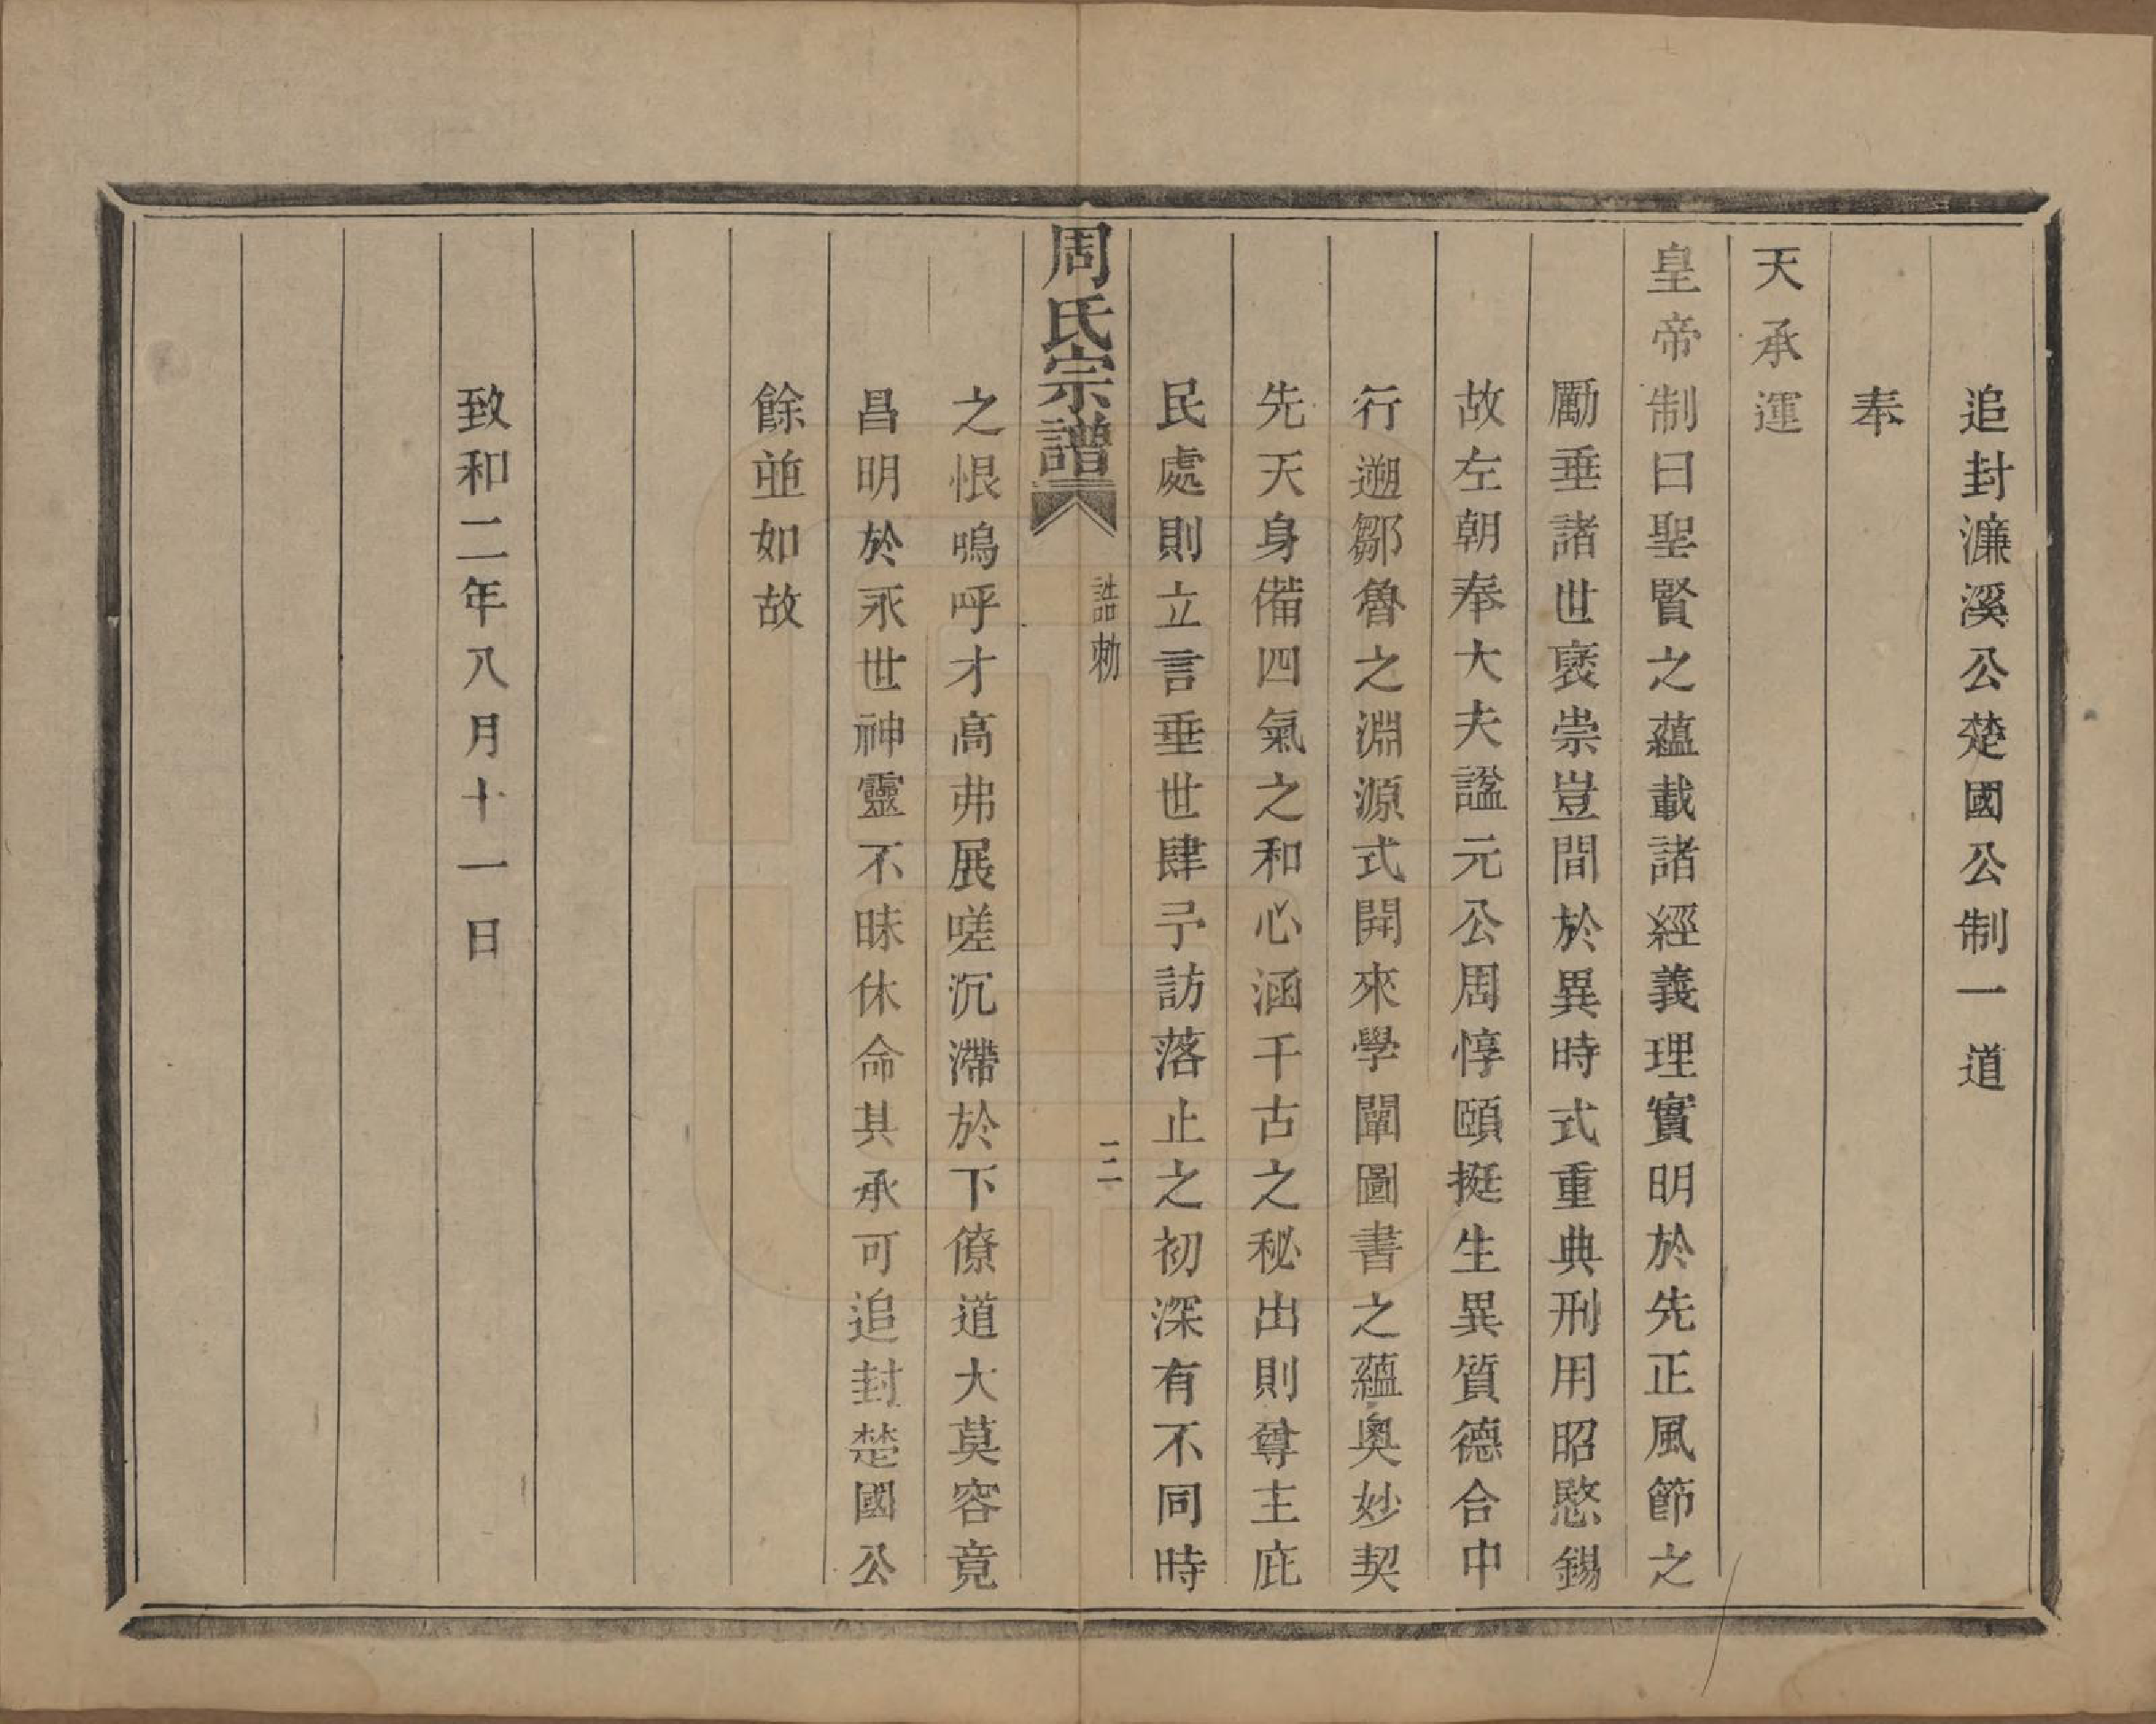 追封濂溪公楚國公制一道
奉
天承運
皇帝制曰聖賢之蘊載諸經義理實明於先正風節之
勵垂諸世襃崇豈間於異時式重典刑用昭愍錫
故左朝奉大夫諡元公周惇頤挺生異質德合中
行遡鄒魯之淵源式開來學闡圖書之蘊奧妙契
先天身備四氣之和心涵千古之秘出則尊主庇
民處則立言垂世肆予訪落止之初深有不同時
周氏宗譜
誥勅
二
之恨嗚呼才高弗展嗟沉滯於下僚道大莫容竟
昌明於永世神靈不昧休命其承可追封楚國公
餘並如故
致和二年八月十一日